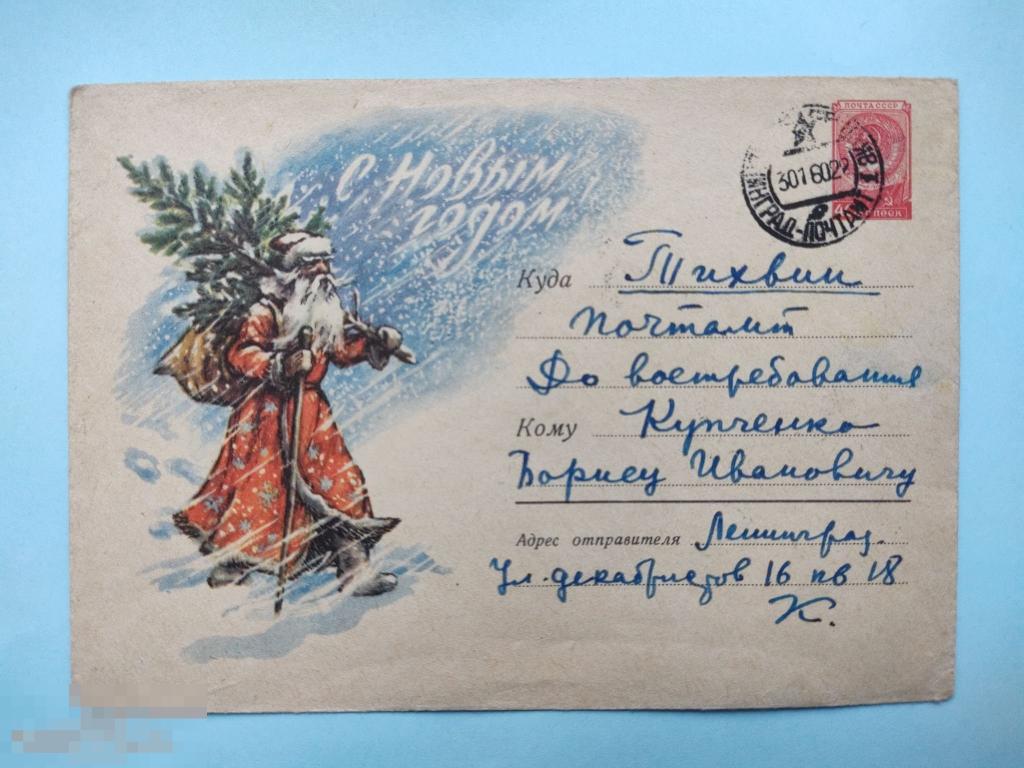 С Новым
годом
ПОЧТА СССР
30 1 60 22
ЛЕНИНГРАД-ПОЧТАМТ
Куда Тихвин
почтамт
До востребования
Кому Купченко
Борису Ивановичу
Адрес отправителя Ленинград.
Ул. декабристов 16 кв 18
К.